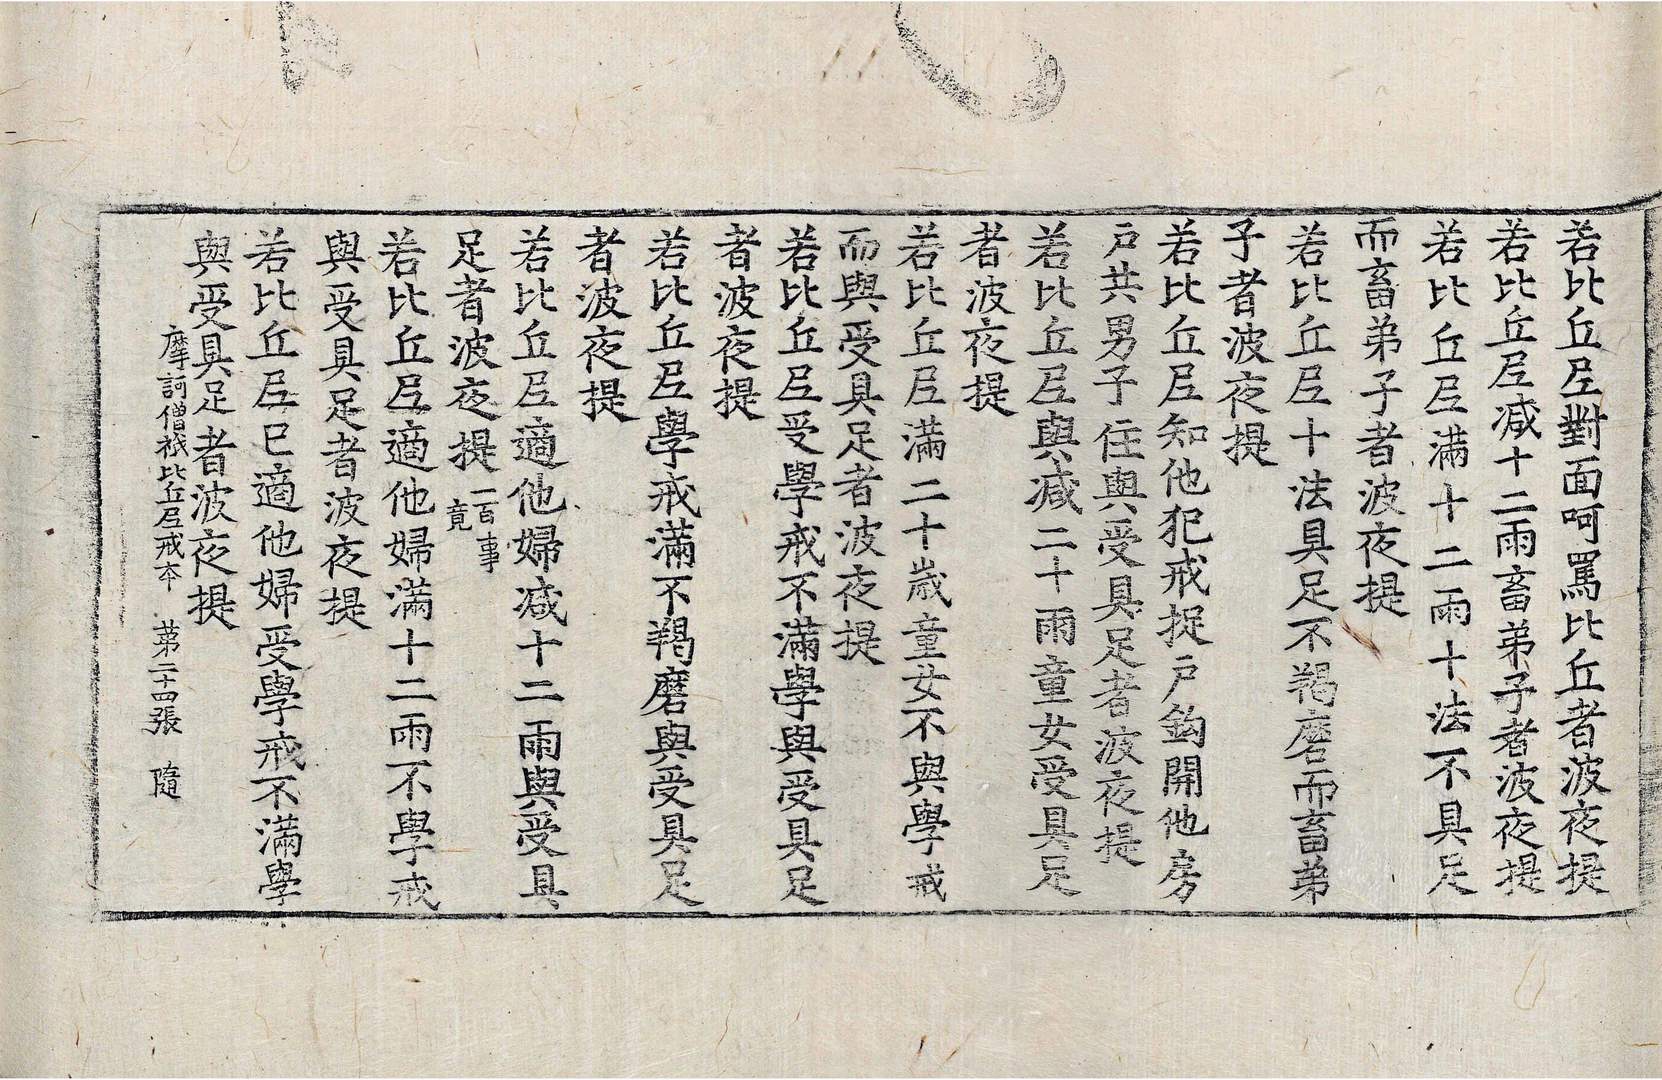 若比丘尼對面呵罵比丘者波夜提
若比丘尼减十二雨畜弟子者波夜提
若比丘尼滿十二雨十法不具足
而畜弟子者波夜提
若比丘尼十法具足不羯磨而畜弟
子者波夜提
若比丘尼知他犯戒捉户鈎開他房
户共男子住與受具足者波夜提
若比丘尼與减二十雨童女受具足
者波夜提
若比丘尼滿二十歲童女不與學戒
而與受具足者波夜提
若比丘尼受學戒不滿學與受具足
者波夜提
若比丘尼學戒滿不羯磨與受具足
者波夜提
若比丘尼適他婦减十二雨與受具
足者波夜提一百事竟
若比丘尼適他婦滿十二雨不學戒
與受具足者波夜提
若比丘尼已適他婦受學戒不滿學
與受具足者波夜提
摩訶僧祇比丘尼戒本 第二十四張 隨